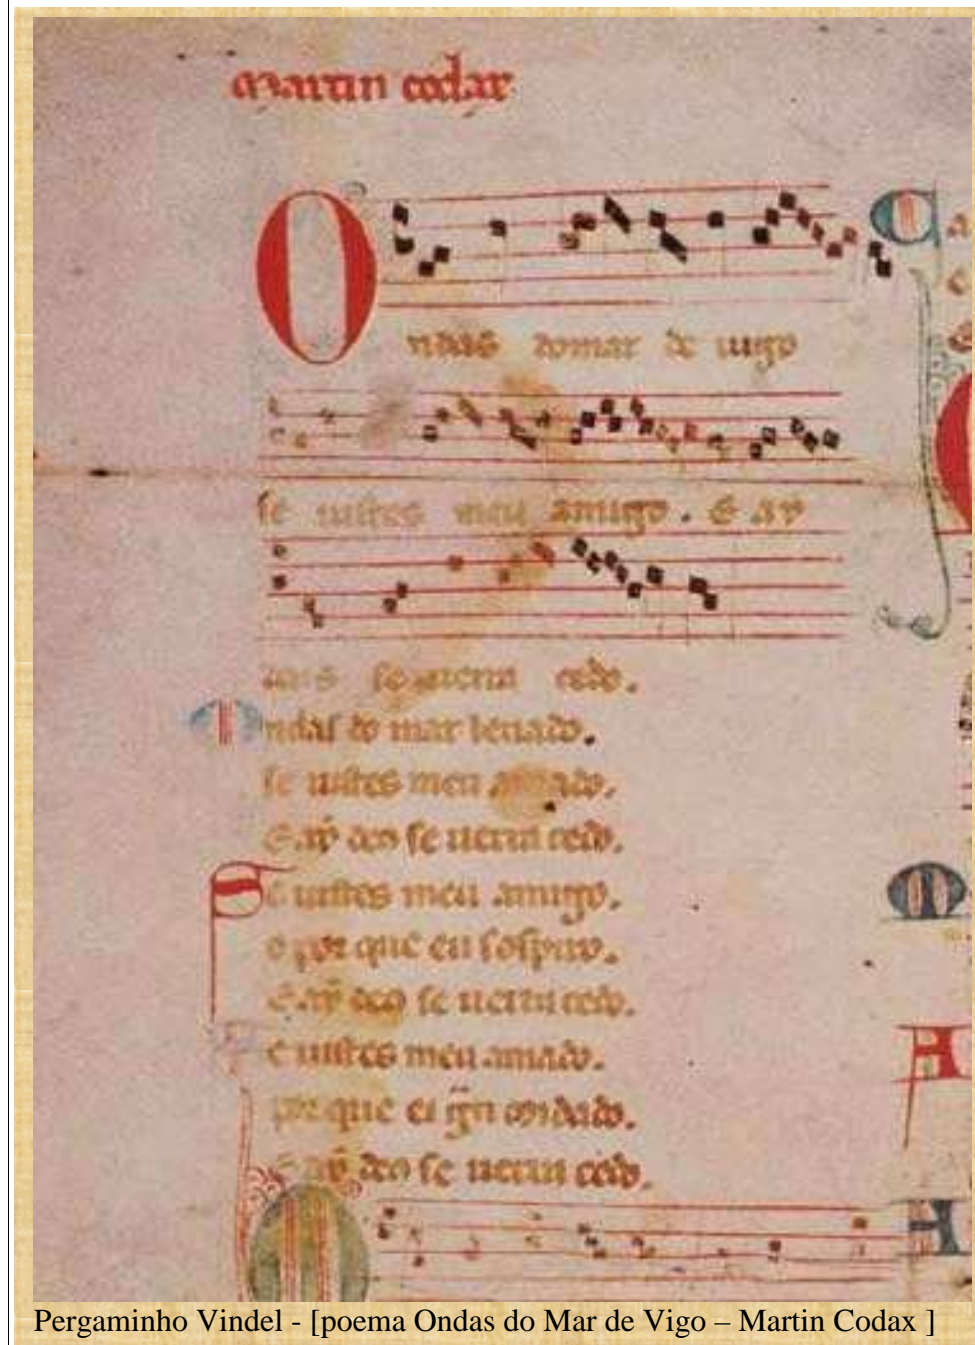 martin codax
Ondas domar de uigo
se uistes meu amigo. E ay
deus se uerra cedo.
Ondas do mar leuado.
se uistes meu amado.
E ay deo se uerra cedo.
Se uistes meu amigo.
o por que eu sospiro.
E ay deo se uerra cedo.
Se uistes meu amado.
por que ei gran coidado.
E ay deo se uerra cedo.
Pergaminho Vindel - [poema Ondas do Mar de Vigo – Martin Codax ]